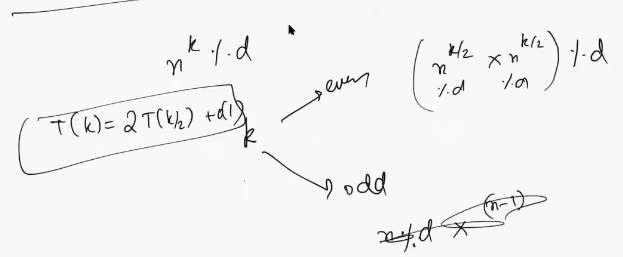 n^k % d
T(k) = 2T(k/2) + O(1)
k
even
(n^{k/2} × n^{k/2}) % d
% d % d
odd
n % d × (n-1)